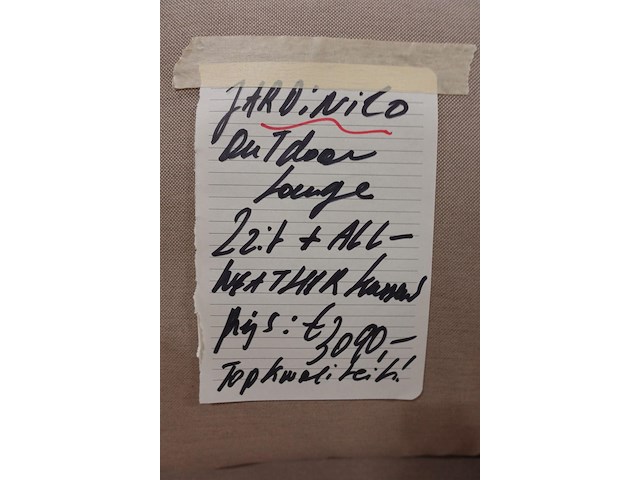 JARDiNiCO
OuTdoor
Lounge
2zit + ALL-
WEATHER kussens
prijs: € 3090,-
Topkwaliteit!